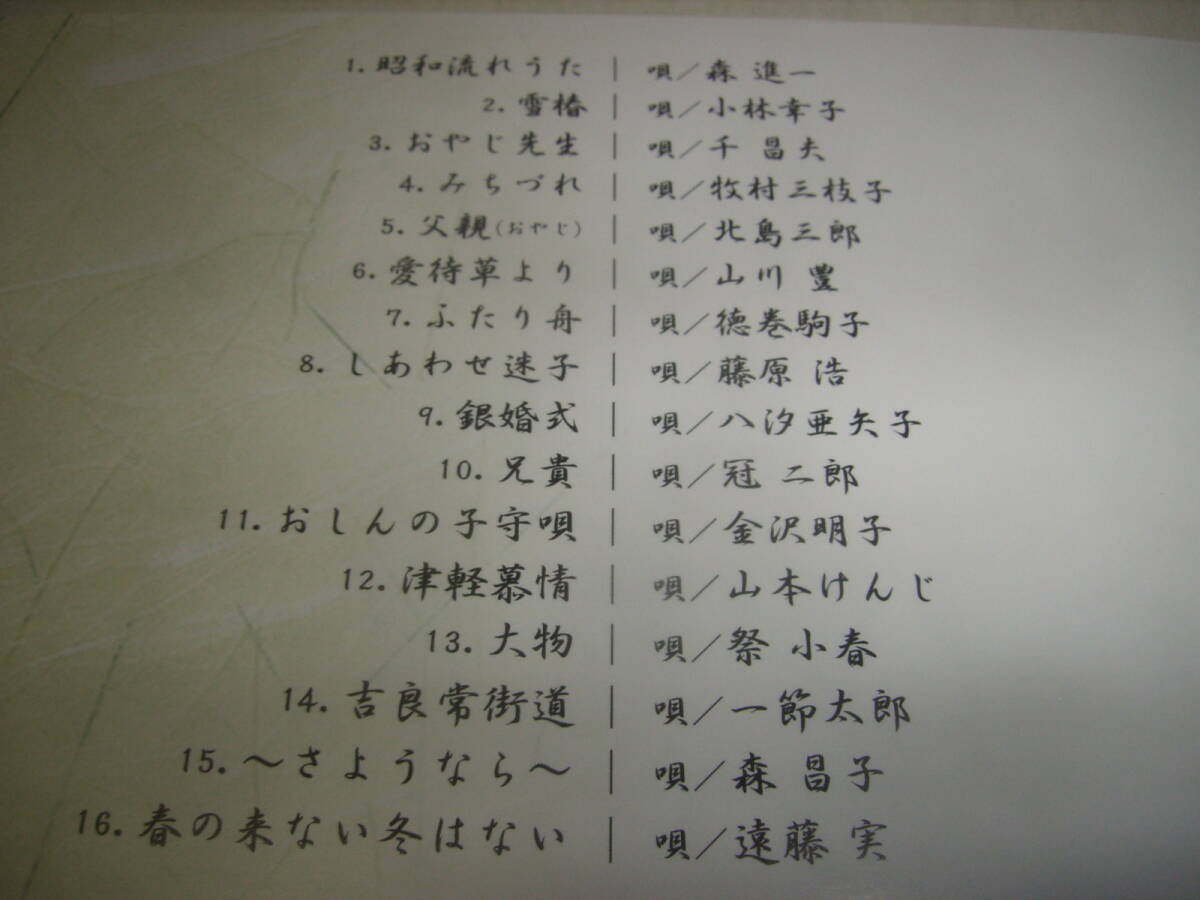 1. 昭和流れうた | 唄/森 進一
2. 雪椿 | 唄/小林幸子
3. おやじ先生 | 唄/千 昌夫
4. みちづれ | 唄/牧村三枝子
5. 父親(おやじ) | 唄/北島三郎
6. 愛待草より | 唄/山川 豊
7. ふたり舟 | 唄/徳巻駒子
8. しあわせ迷子 | 唄/藤原 浩
9. 銀婚式 | 唄/八汐亜矢子
10. 兄貴 | 唄/冠 二郎
11. おしんの子守唄 | 唄/金沢明子
12. 津軽慕情 | 唄/山本けんじ
13. 大物 | 唄/祭 小春
14. 吉良常街道 | 唄/一節太郎
15. 〜さようなら〜 | 唄/森 昌子
16. 春の来ない冬はない | 唄/遠藤 実